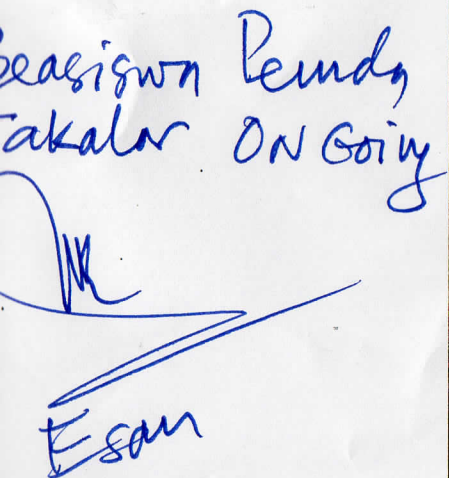 Beasiswa Pemda
Takalar ON Going
Esan